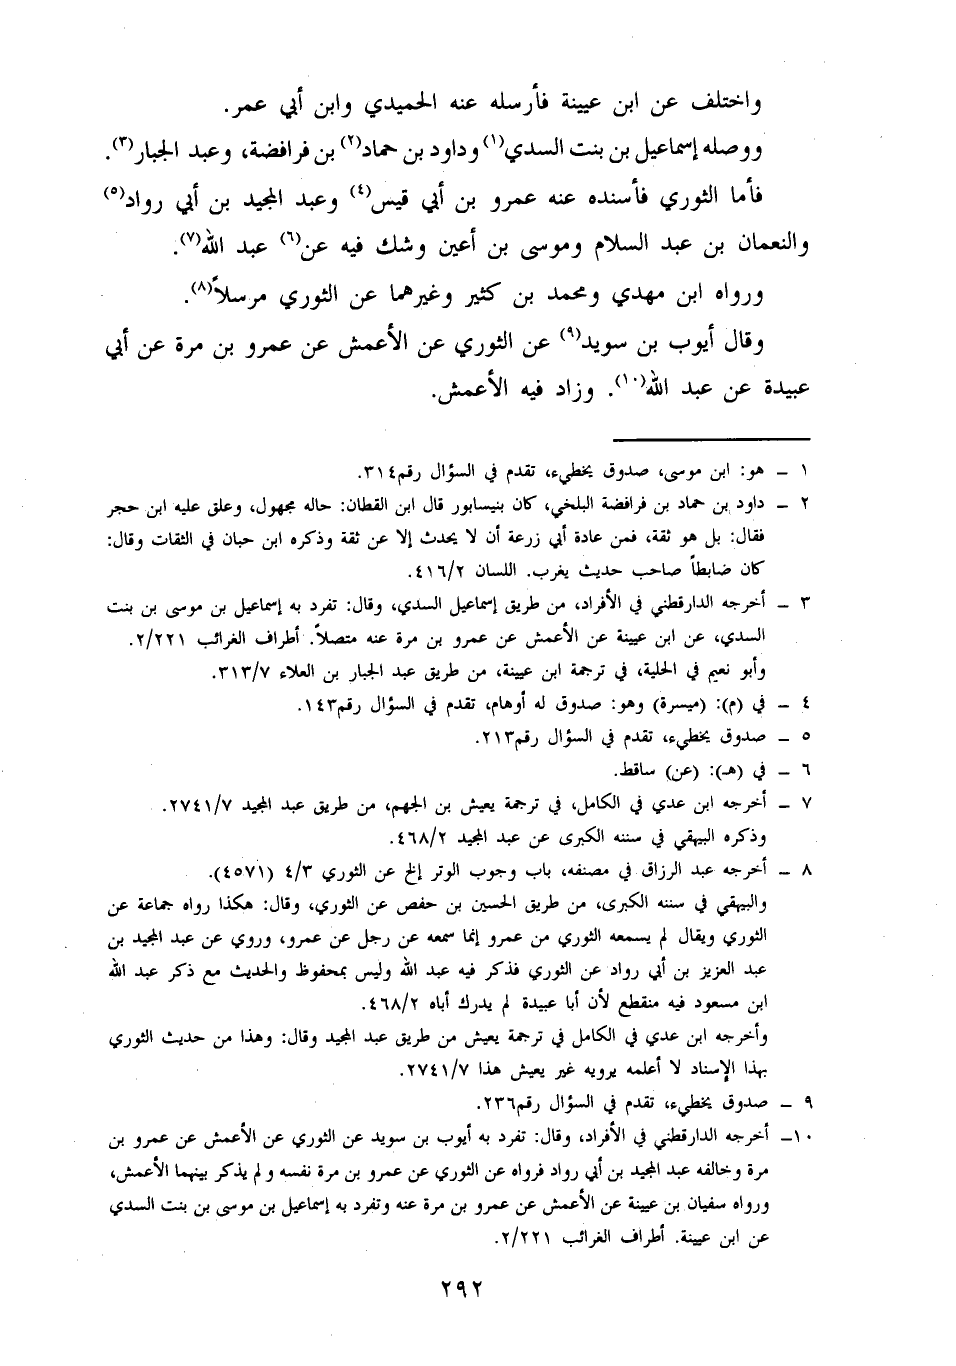 واختلف عن ابن عيينة فأرسله عنه الحميدي وابن أبي عمر.
ووصله إسماعيل بن بنت السدي(١) وداود بن حماد(٢) بن فرافضة، وعبد الجبار(٣).
فأما الثوري فأسنده عنه عمرو بن أبي قيس(٤) وعبد المجيد بن أبي رواد(٥)
والنعمان بن عبد السلام وموسى بن أعين وشك فيه عن(٦) عبد الله(٧).
ورواه ابن مهدي ومحمد بن كثير وغيرهما عن الثوري مرسلاً(٨).
وقال أيوب بن سويد(٩) عن الثوري عن الأعمش عن عمرو بن مرة عن أبي
عبيدة عن عبد الله(١٠). وزاد فيه الأعمش.
١ ـ هو: ابن موسى، صدوق يخطيء، تقدم في السؤال رقم٣١٤.
٢ ـ داود بن حماد بن فرافضة البلخي، كان بنيسابور قال ابن القطان: حاله مجهول، وعلق عليه ابن حجر
فقال: بل هو ثقة، فمن عادة أبي زرعة أن لا يحدث إلا عن ثقة وذكره ابن حبان في الثقات وقال:
كان ضابطاً صاحب حديث يغرب. اللسان ٤١٦/٢.
٣ ـ أخرجه الدارقطني في الأفراد، من طريق إسماعيل السدي، وقال: تفرد به إسماعيل بن موسى بن بنت
السدي، عن ابن عيينة عن الأعمش عن عمرو بن مرة عنه متصلاً. أطراف الغرائب ٢/٢٢١.
وأبو نعيم في الحلية، في ترجمة ابن عيينة، من طريق عبد الجبار بن العلاء ٣١٣/٧.
٤ ـ في (م): (ميسرة) وهو: صدوق له أوهام، تقدم في السؤال رقم١٤٣.
٥ ـ صدوق يخطيء، تقدم في السؤال رقم٢١٣.
٦ ـ في (هـ): (عن) ساقط.
٧ ـ أخرجه ابن عدي في الكامل، في ترجمة يعيش بن الجهم، من طريق عبد المجيد ٢٧٤١/٧.
وذكره البيهقي في سننه الكبرى عن عبد المجيد ٤٦٨/٢.
٨ ـ أخرجه عبد الرزاق في مصنفه، باب وجوب الوتر إلخ عن الثوري ٤/٣ (٤٥٧١).
والبيهقي في سننه الكبرى، من طريق الحسين بن حفص عن الثوري، وقال: هكذا رواه جماعة عن
الثوري ويقال لم يسمعه الثوري من عمرو إنما سمعه عن رجل عن عمرو، وروي عن عبد المجيد بن
عبد العزيز بن أبي رواد عن الثوري فذكر فيه عبد الله وليس بمحفوظ والحديث مع ذكر عبد الله
ابن مسعود فيه منقطع لأن أبا عبيدة لم يدرك أباه ٤٦٨/٢.
وأخرجه ابن عدي في الكامل في ترجمة يعيش من طريق عبد المجيد وقال: وهذا من حديث الثوري
بهذا الإسناد لا أعلمه يرويه غير يعيش هذا ٢٧٤١/٧.
٩ ـ صدوق يخطيء، تقدم في السؤال رقم٢٣٦.
١٠ـ أخرجه الدارقطني في الأفراد، وقال: تفرد به أيوب بن سويد عن الثوري عن الأعمش عن عمرو بن
مرة وخالفه عبد المجيد بن أبي رواد فرواه عن الثوري عن عمرو بن مرة نفسه ولم يذكر بينهما الأعمش،
ورواه سفيان بن عيينة عن الأعمش عن عمرو بن مرة عنه وتفرد به إسماعيل بن موسى بن بنت السدي
عن ابن عيينة. أطراف الغرائب ٢/٢٢١.
٢٩٢